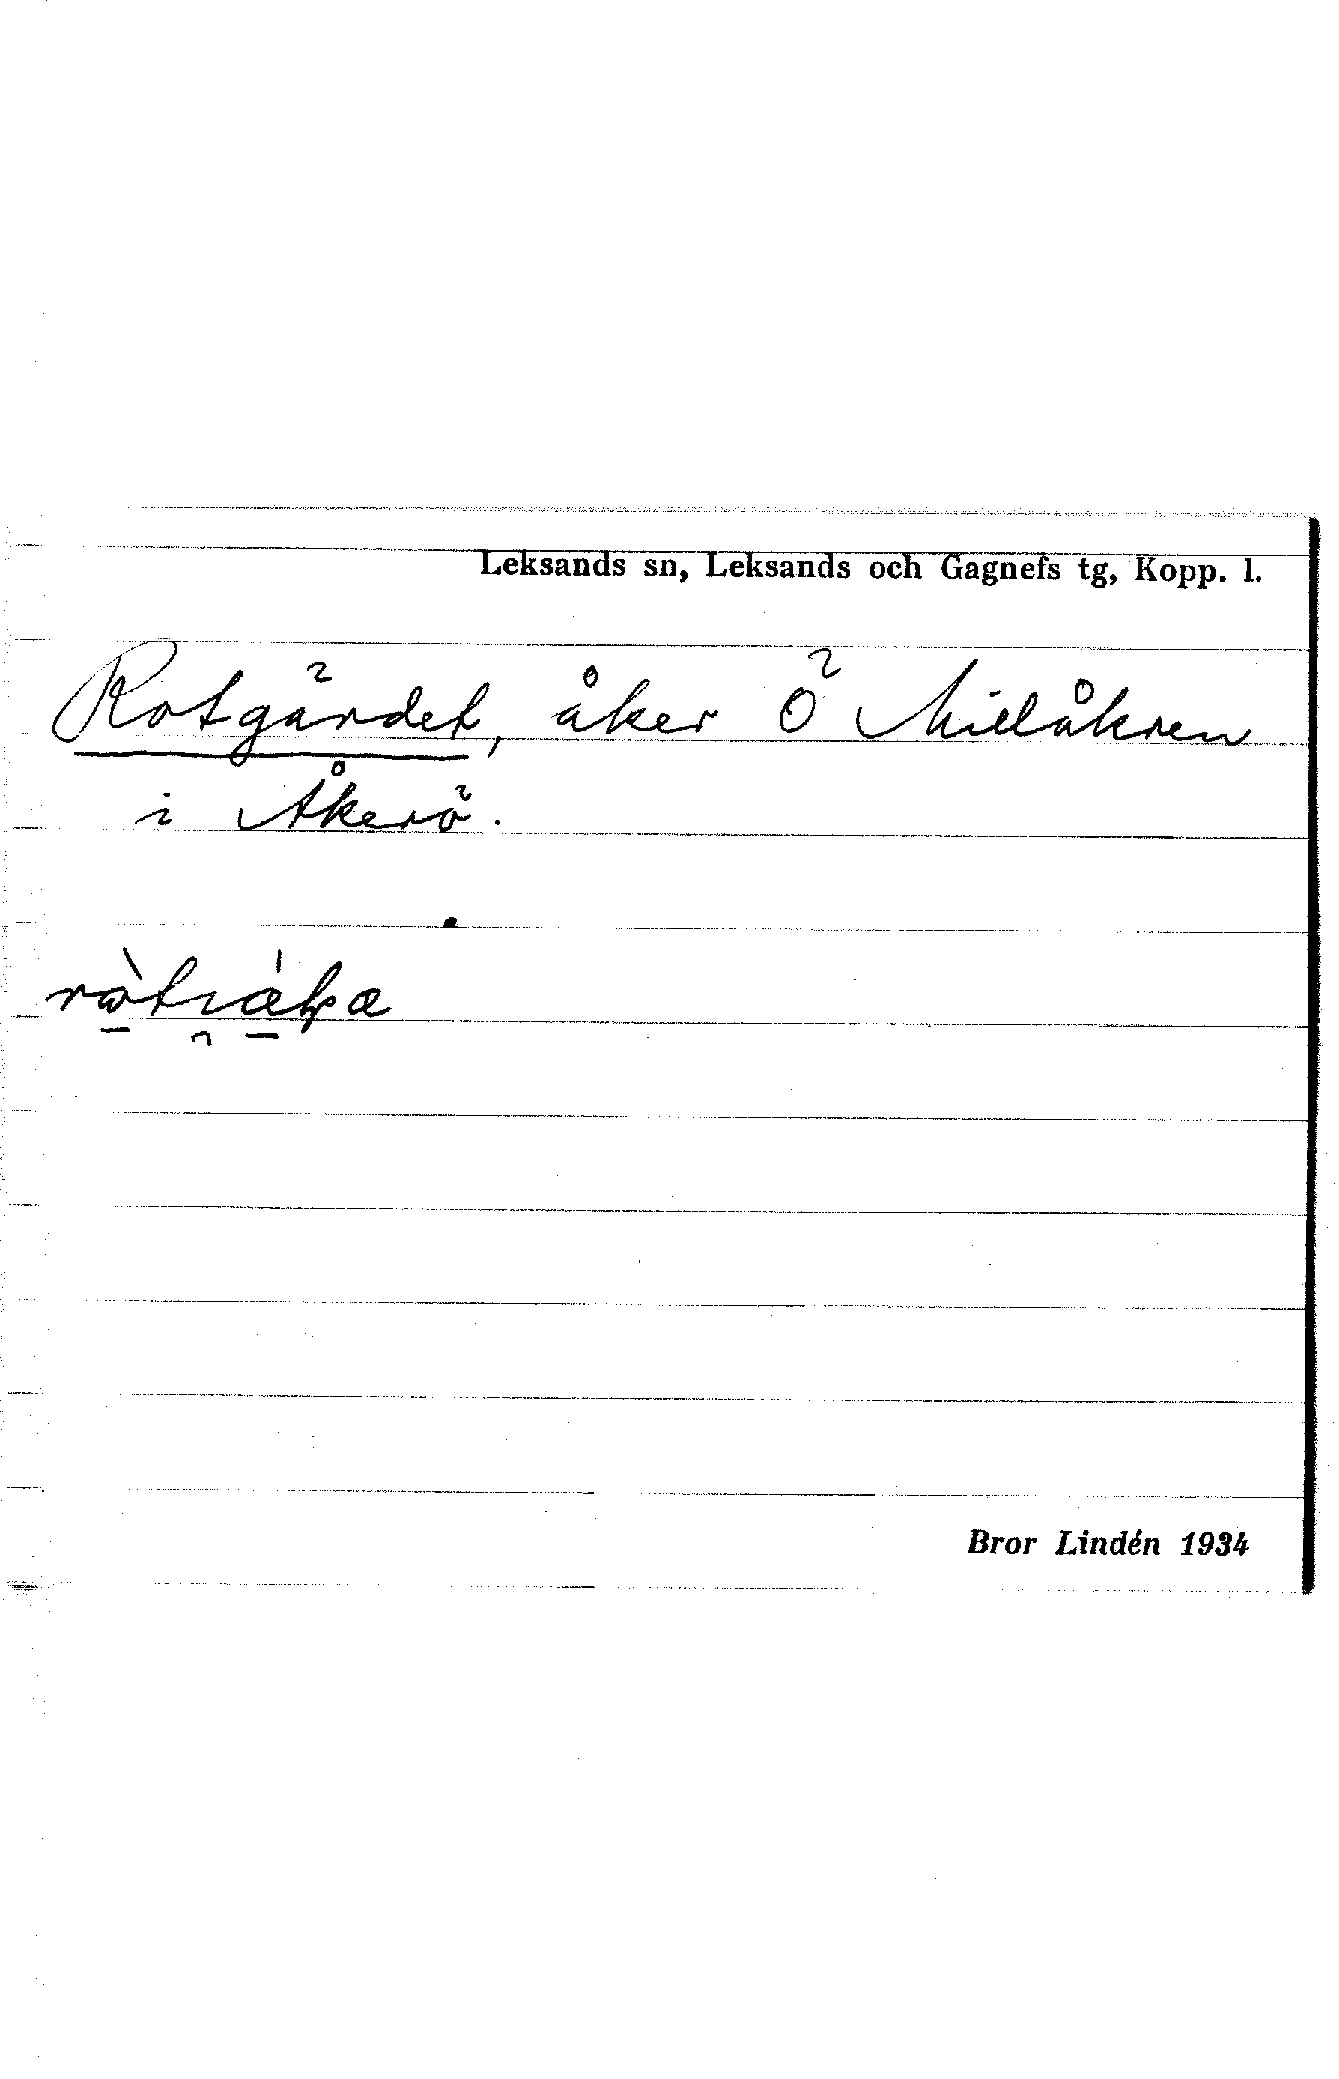 Leksands sn, Leksands och Gagnefs tg, Kopp. l.
Rotgärdet, åker Ö Millåkren
i Åkerö.
Bror Lindén 1934